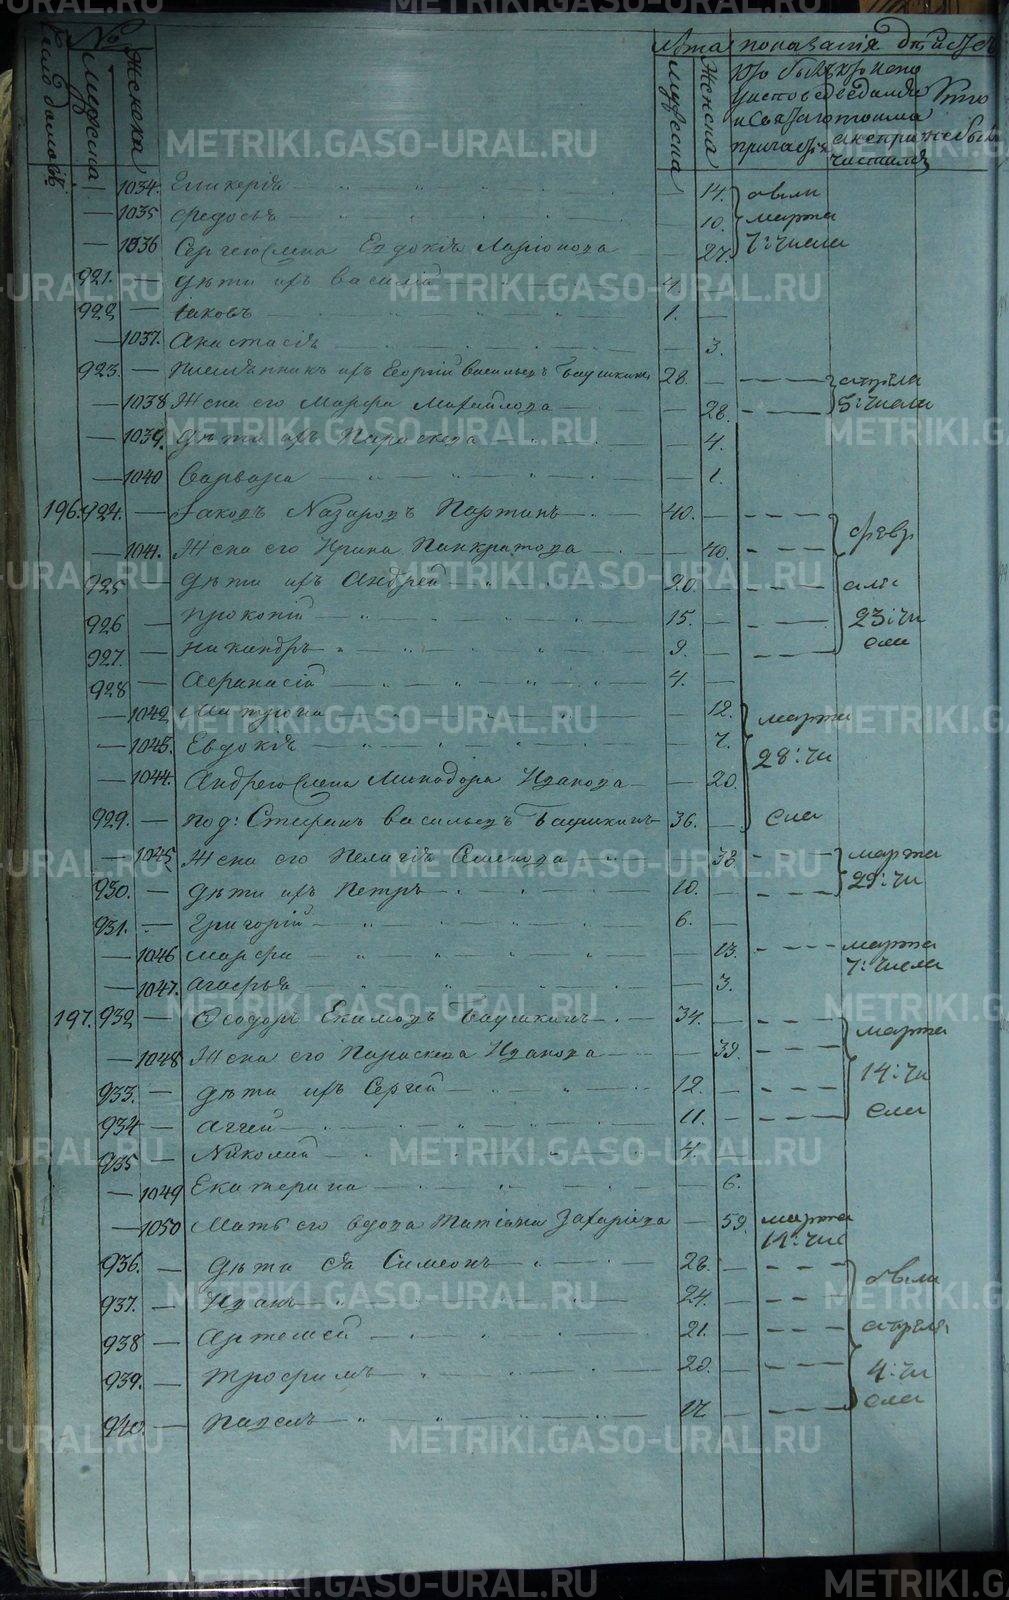 число домовъ № Мужеска Женска Лѣта показанія дѣйств
Мужеска Женска кто былъ у исповеди и Святаго причастія
1034. Гликерія 14. были
1035 Федосья 10. марта
1036 Сергеюжена Евдокія Ларіонова 27. 7: числа
921. дѣти ихъ Василій 4.
922 Іаковъ 1.
1037. Анастасія 3.
923. Племянникъ ихъ Георгій Васильевъ Баушкинъ 28. апреля
1038 Жена его Марфа Михайлова 28. 5: числа
1039. дѣти ихъ Параскева 4.
1040 Варвара 1.
196. 924. Іаковъ Назаровъ Партинъ 40.
1041. Жена его Ирина Панкратова 40. февр
925 дѣти ихъ Андрей 20. аля
926 Прокопій 15. 23: чи
927. Никандръ 9. сла
928 Афанасій 4.
1042 Матрона 12. марта
1043. Евдокія 7. 28: чи
1044. Андреюжена Минодора Иванова 20.
929. под: Стефанъ Васильевъ Баушкинъ 36. сла
1045 Жена его Пелагія Семенова 38 марта
930. дѣти ихъ Петръ 10. 29: чи
931. Григорій 6.
1046 Марфа 13. марта
1047. Агафья 3. 7: числа
197. 932 Ѳеодоръ Екимовъ Баушкинъ 34.
1048 Жена его Параскева Иванова 39. марта
933. дѣти ихъ Сергей 12. 14: чи
934 Аггей 11. сла
935 Николай 4.
1049 Екатерина 6.
1050 Мать его вдова Татіана Захаріева 59. марта 14: чис
936. дѣти ея Симеонъ 26. были
937. Иванъ 24.
938 Артемей 21. апреля
939. Трофимъ 20. 4: чи
940. Павелъ 17. сла
METRIKI.GASO-URAL.RU